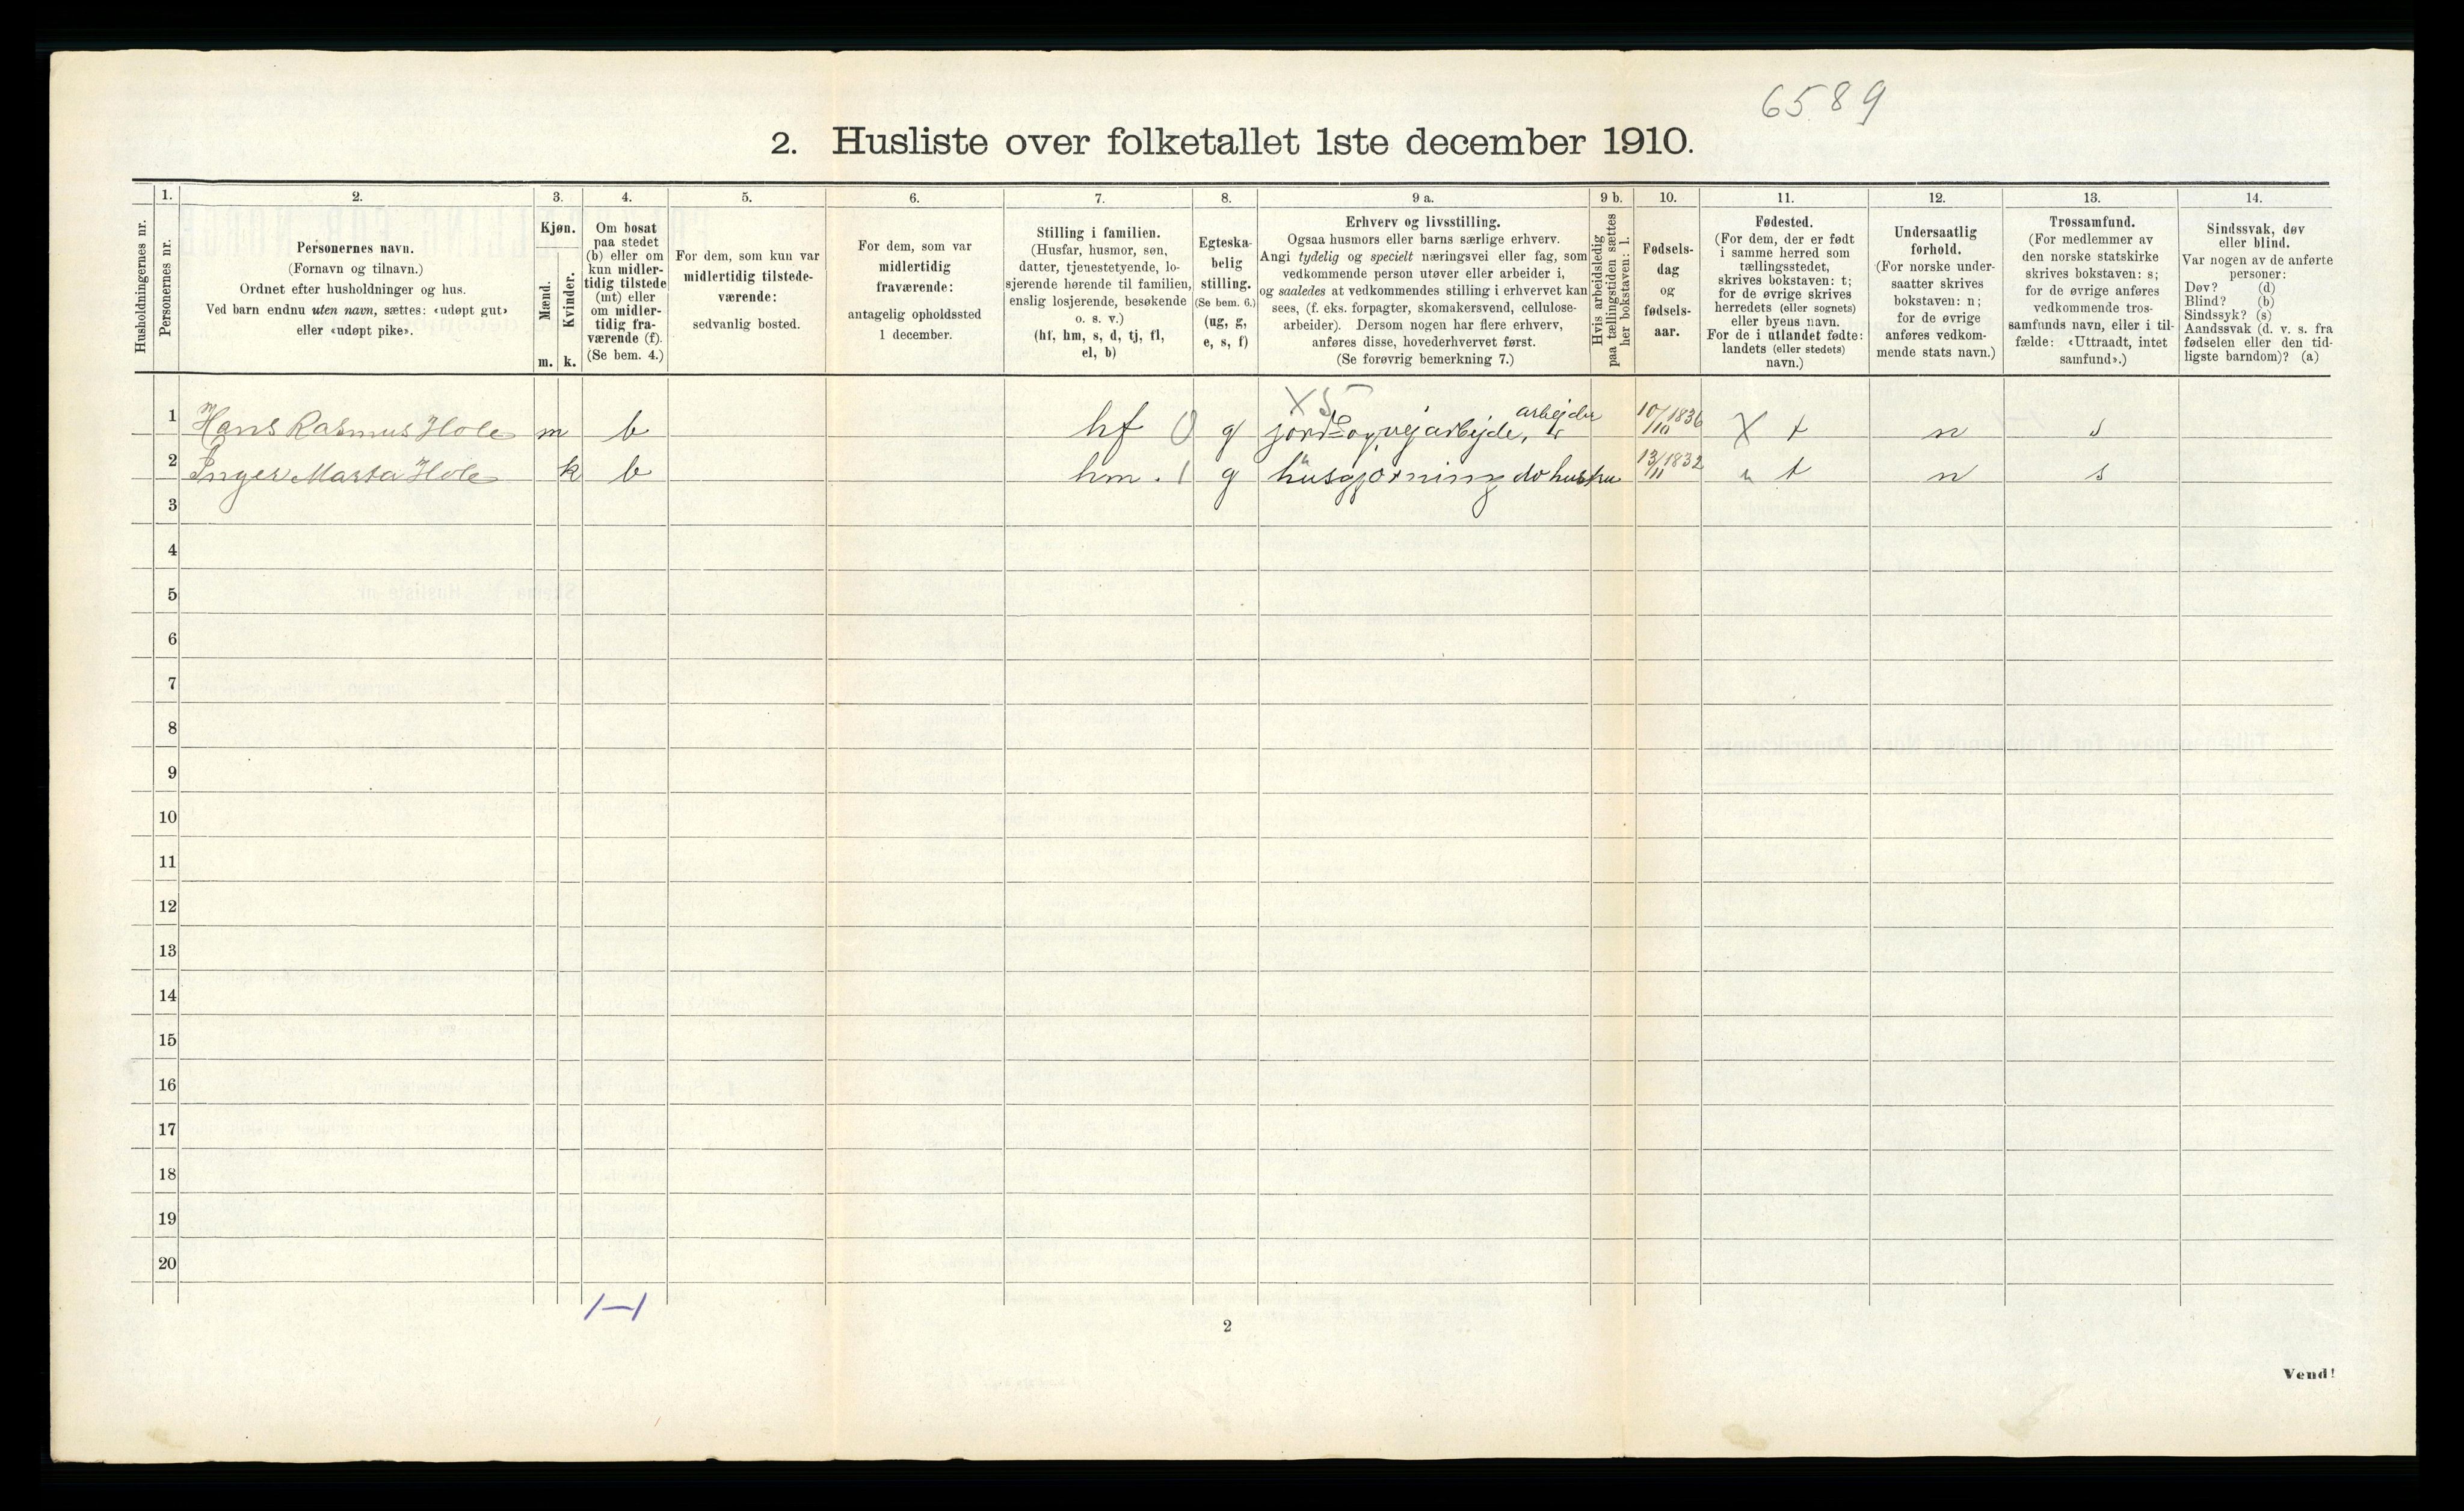 6589
2. Husliste over folketallet 1ste december 1910.
Husholdningernes nr.
1.
Personernes nr.
2.
Personernes navn.
(Fornavn og tilnavn.)
Ordnet efter husholdninger og hus.
Ved barn endnu uten navn, sættes: «udøpt gut»
eller «udøpt pike».
3.
Kjøn.
Mænd.
m.
Kvinder.
k.
4.
Om bosat
paa stedet
(b) eller om
kun midler-
tidig tilstede
(mt) eller
om midler-
tidig fra-
værende (f).
(Se bem. 4.)
5.
For dem, som kun var
midlertidig tilstede-
værende:
sedvanlig bosted.
6.
For dem, som var
midlertidig
fraværende:
antagelig opholdssted
1 december.
7.
Stilling i familien.
(Husfar, husmor, søn,
datter, tjenestetyende, lo-
sjerende hørende til familien,
enslig losjerende, besøkende
o. s. v.)
(hf, hm, s, d, tj, fl,
el, b)
8.
Egteska-
belig
stilling.
(Se bem. 6.)
(ug, g,
e, s, f)
9 a.
Erhverv og livsstilling.
Ogsaa husmors eller barns særlige erhverv.
Angi tydelig og specielt næringsvei eller fag, som
vedkommende person utøver eller arbeider i,
og saaledes at vedkommendes stilling i erhvervet kan
sees, (f. eks. forpagter, skomakersvend, cellulose-
arbeider). Dersom nogen har flere erhverv,
anføres disse, hovederhvervet først.
(Se forøvrig bemerkning 7.)
9 b.
Hvis arbeidsledig
paa tællingstiden sættes
her bokstaven: l.
10.
Fødsels-
dag
og
fødsels-
aar.
11.
Fødested.
(For dem, der er født
i samme herred som
tællingsstedet,
skrives bokstaven: t;
for de øvrige skrives
herredets (eller sognets)
eller byens navn.
For de i utlandet fødte:
landets (eller stedets)
navn.)
12.
Undersaatlig
forhold.
(For norske under-
saatter skrives
bokstaven: n;
for de øvrige
anføres vedkom-
mende stats navn.)
13.
Trossamfund.
(For medlemmer av
den norske statskirke
skrives bokstaven: s;
for de øvrige anføres
vedkommende tros-
samfunds navn, eller i til-
fælde: «Uttraadt, intet
samfund».)
14.
Sindssvak, døv
eller blind.
Var nogen av de anførte
personer:
Døv? (d)
Blind? (b)
Sindssyk? (s)
Aandssvak (d. v. s. fra
fødselen eller den tid-
ligste barndom)? (a)
X 5
1 Hans Rasmus Hole m b hf 0 g jord og vejarbejde, arbejder 10/10 1836 X t n s
2 Inger Marta Hole k b hm. 1 g husgjørning do hustru 13/11 1832 t n s
3
4
5
6
7
8
9
10
11
12
13
14
15
16
17
18
19
20
1—1
2
Vend!